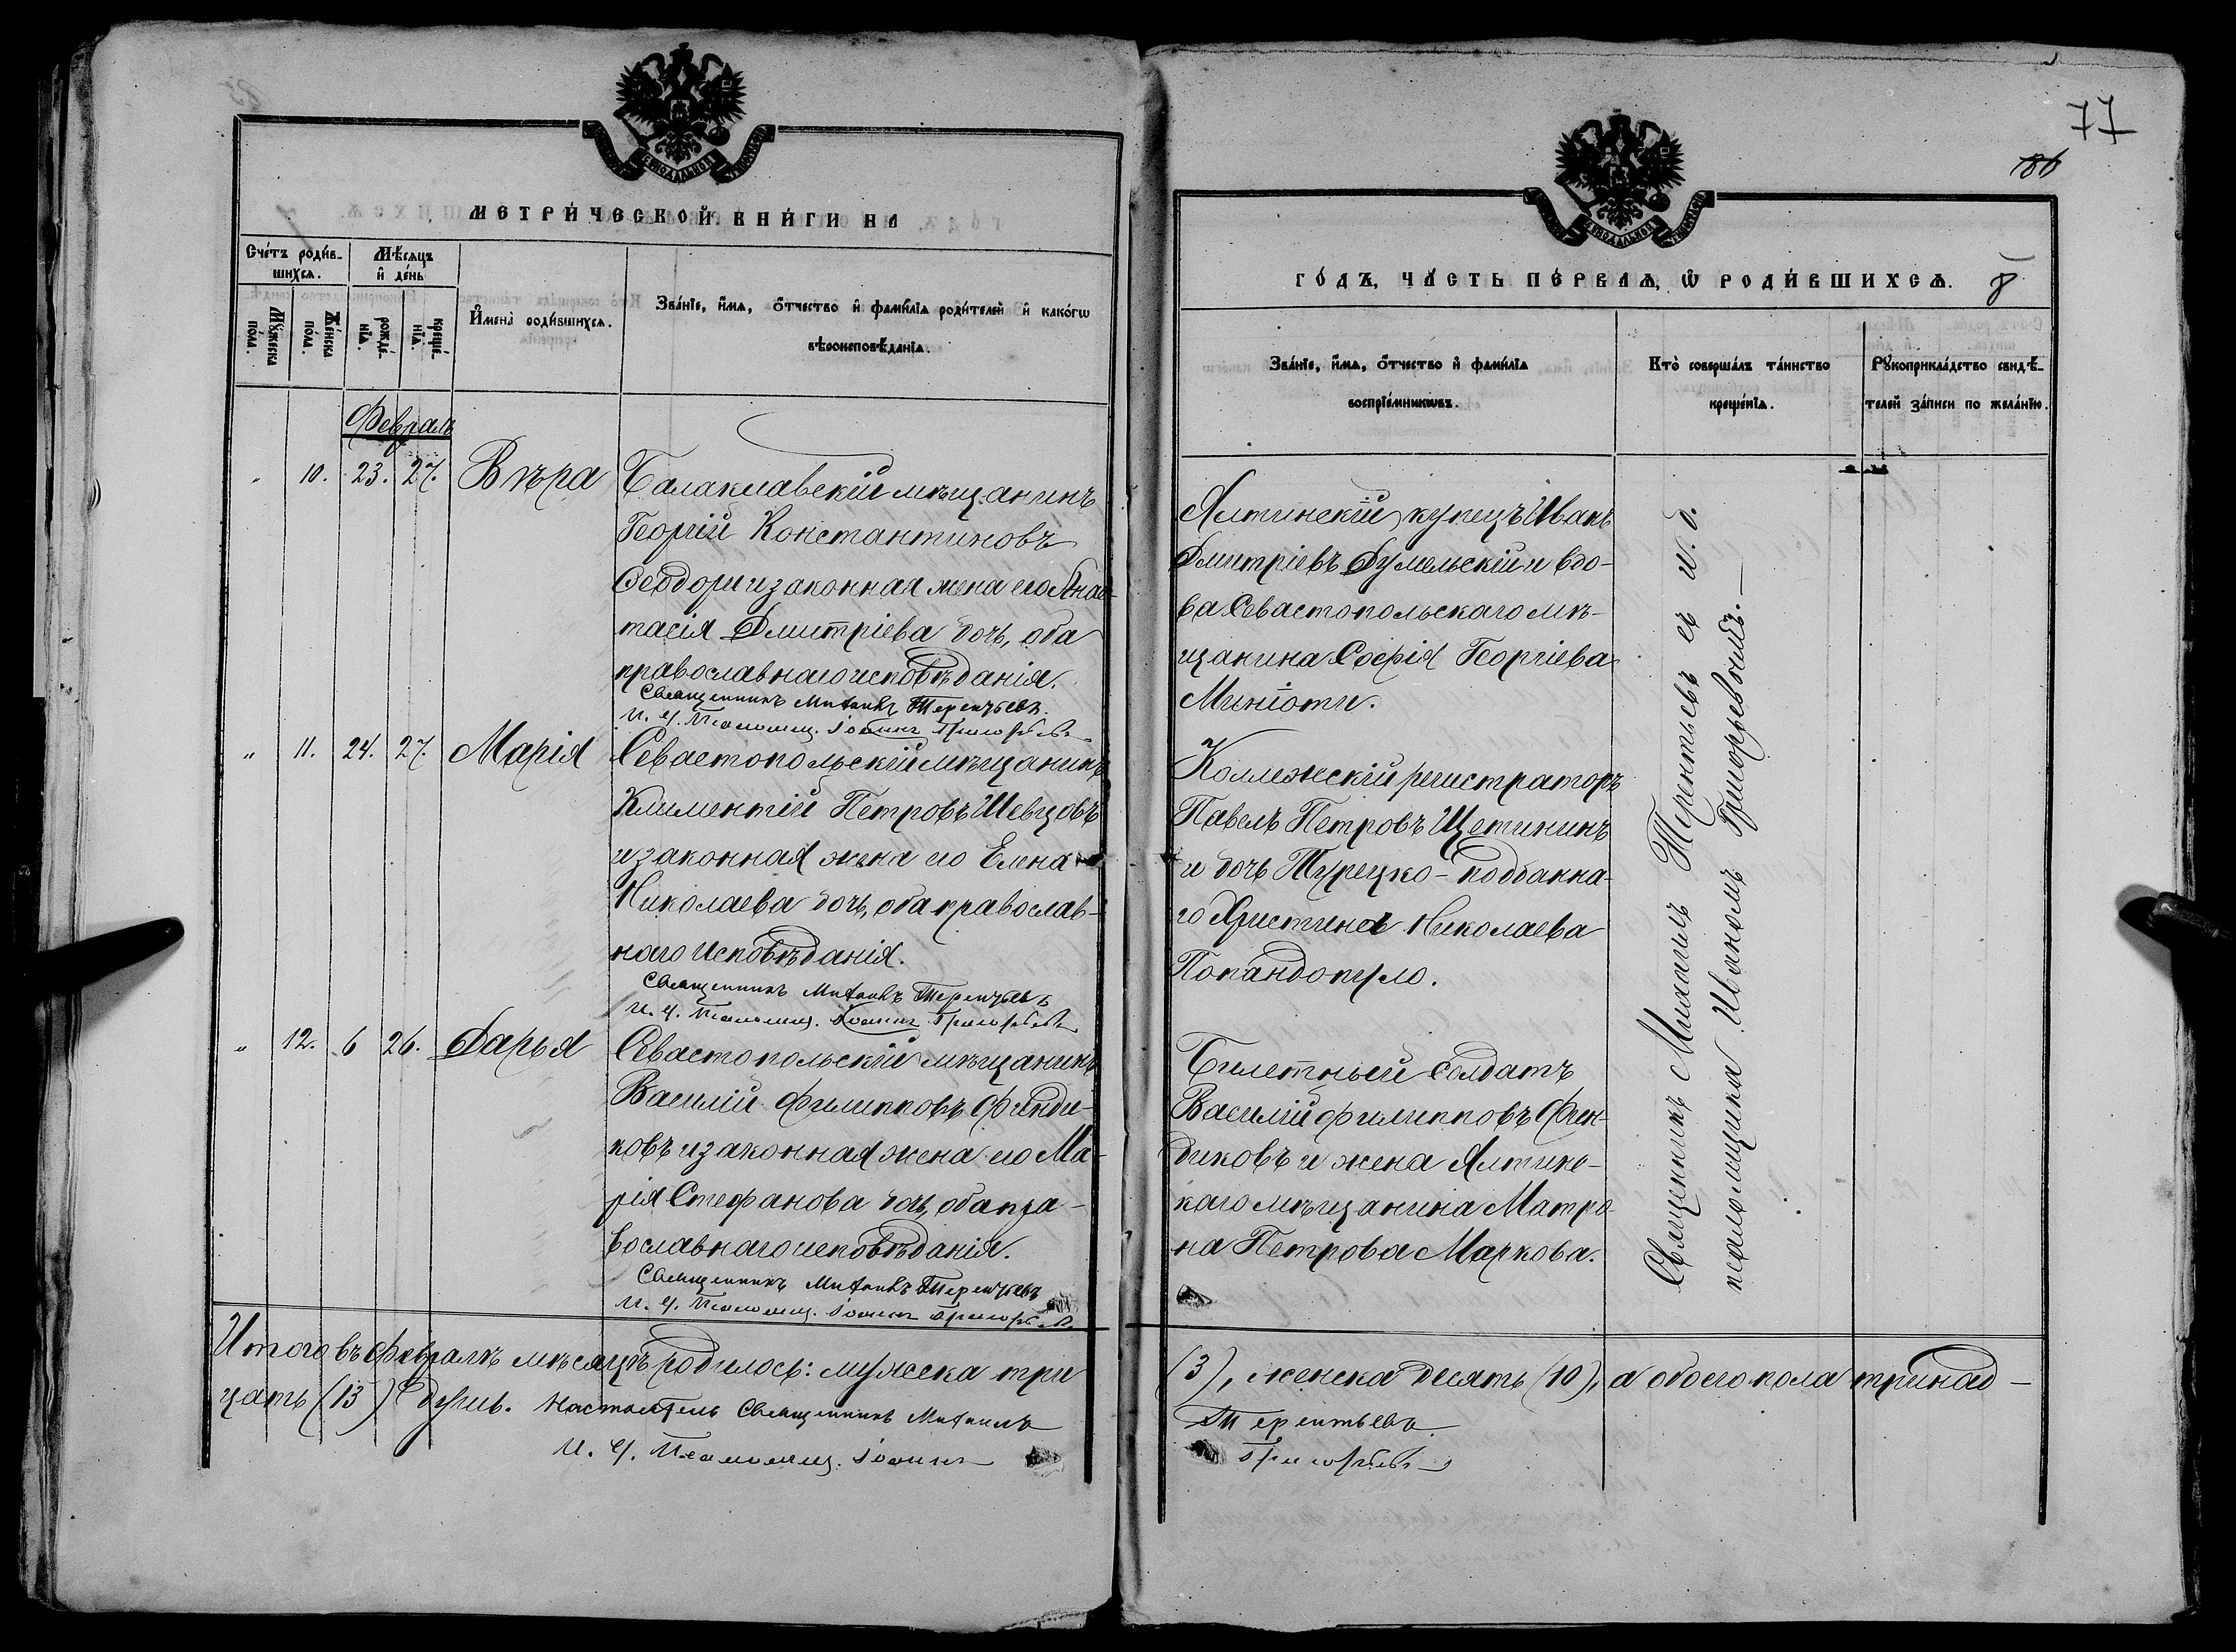 МЕТРИ́ЧЕСКОЙ КНИ́ГИ НА
Сче́тъ роди́в-
шихсѧ.
Мѣ́сѧцъ
и҆ де́нь
Мꙋ́жеска
по́ла.
Же́нска
по́ла.
рожде́-
нїѧ.
креще́-
нїѧ.
И҆мена̀ роди́вшихсѧ.
Зва́нїе, и҆́мѧ, ѻ҆́тчество и҆ фами́лїѧ роди́телей и҆ како́гѡ
вѣроисповѣ́данїѧ.
Февраль
" 10. 23. 27. Вѣра
Балаклавскій мѣщанинъ
Георгій Константиновъ
Ѳеодори и законная жена его Анас-
тасія Дмитріева дочь, оба
православнаго исповѣданія.
Священникъ Михаилъ Терентьевъ.
И. д. Псаломщ. Іоаннъ Григорьевъ
" 11. 24. 27. Марія
Севастопольскій мѣщанинъ
Климентій Петровъ Шевцовъ
и законная жена его Елена
Николаева дочь, оба православ-
наго исповѣданія.
Священникъ Михаилъ Терентьевъ
И. д. Псаломщ. Іоаннъ Григорьевъ
" 12. 6 26. Дарья
Севастопольскій мѣщанинъ
Василій Филипповъ Финди-
ковъ и законная жена его Ма-
рія Стефанова дочь, оба пра-
вославнаго исповѣданія.
Священникъ Михаилъ Терентьевъ
И. д. Псаломщ. Іоаннъ Григорьевъ
Итого въ Февралѣ мѣсяцѣ родилось: мужеска три
цать (13) душъ. Настоятель Священникъ Михаилъ
И. д. Псаломщ. Іоаннъ
77
186
ГО́ДЪ, ЧА́СТЬ ПЕ́РВАѦ, Ѡ҆ РОДИ́ВШИХСѦ. 8
Зва́нїе, и҆́мѧ, ѻ҆́тчество и҆ фами́лїѧ
воспрїе́мникѡвъ.
Кто̀ соверша́лъ та́инство
креще́нїѧ.
Рꙋкоприкла́дство свидѣ́-
телей за́писи по жела́нїю.
Ялтинскій купецъ Иванъ
Дмитріевъ Думельскій и вдо-
ва Севастопольскаго мѣ-
щанина Софія Георгіева
Миніоти.
Коллежскій регистраторъ
Павелъ Петровъ Щетининъ
и дочь Турецко-подданна-
го Христина Николаева
Попандопуло.
Билетный солдатъ
Василій Филипповъ Фин-
диковъ и жена Ялтинс-
каго мѣщанина Матро-
на Петрова Маркова.
Священникъ Михаилъ Терентьевъ съ и. д.
псаломщика Иваномъ Григорьевымъ.
(3), женска десять (10), а обоего пола тринад-
Терентьевъ.
Григорьевъ